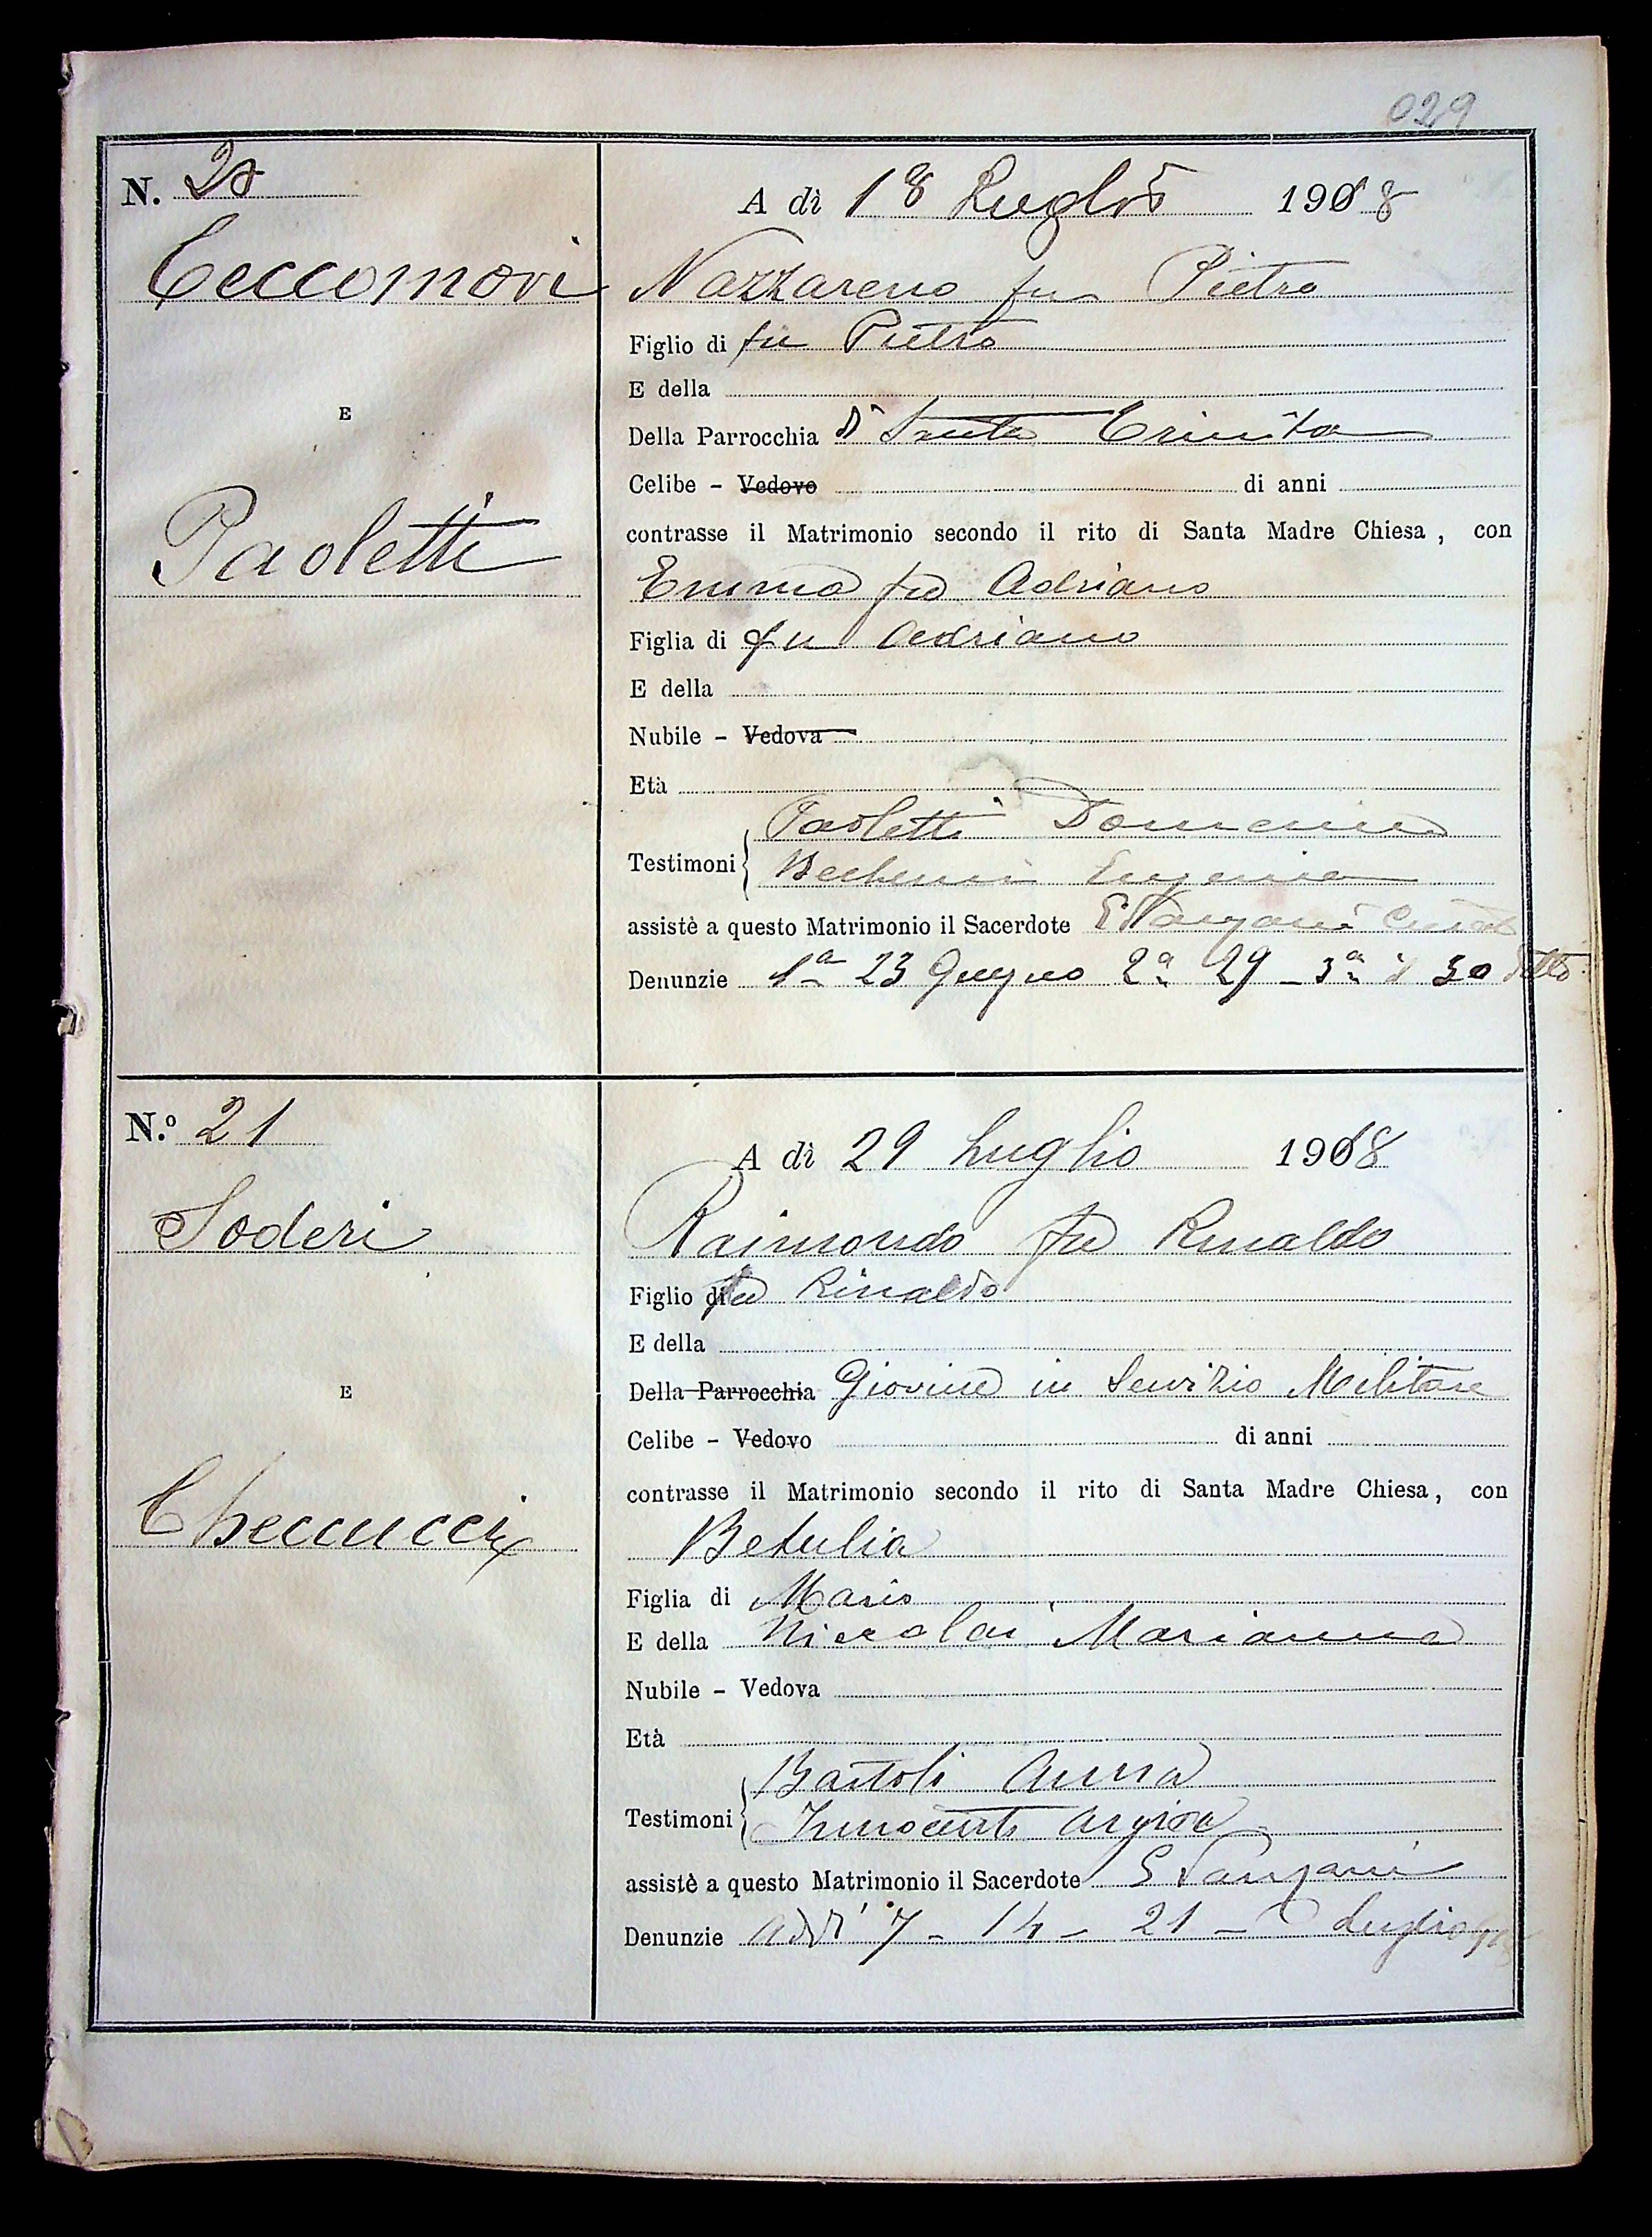 029
N. 20
A dì 18 Luglio 1918
Ceccomori
Nazzareno fu Pietro
Figlio di fu Pietro
E della
E
Della Parrocchia di Santa Trinita
Celibe - Vedovo di anni
contrasse il Matrimonio secondo il rito di Santa Madre Chiesa, con
Paoletti
Emma fu Adriano
Figlia di fu Adriano
E della
Nubile - Vedova
Età
Paoletti Domenico
Testimoni
Eugenia
assistè a questo Matrimonio il Sacerdote
Denunzie 1a 23 Giugno 2a 29 - 3a il 30 detto
N.º 21
A dì 29 Luglio 1918
Soderi
Raimondo fu Rinaldo
Figlio di fu Rinaldo
E della
E
Della Parrocchia Giovine in Servizio Militare
Celibe - Vedovo di anni
contrasse il Matrimonio secondo il rito di Santa Madre Chiesa, con
Checcucci
Betulia
Figlia di Mario
E della Niccolai Marianna
Nubile - Vedova
Età
Bartoli Anna
Testimoni
Innocenti Argia
assistè a questo Matrimonio il Sacerdote
Denunzie Addì 7 - 14 - 21 - Luglio 918